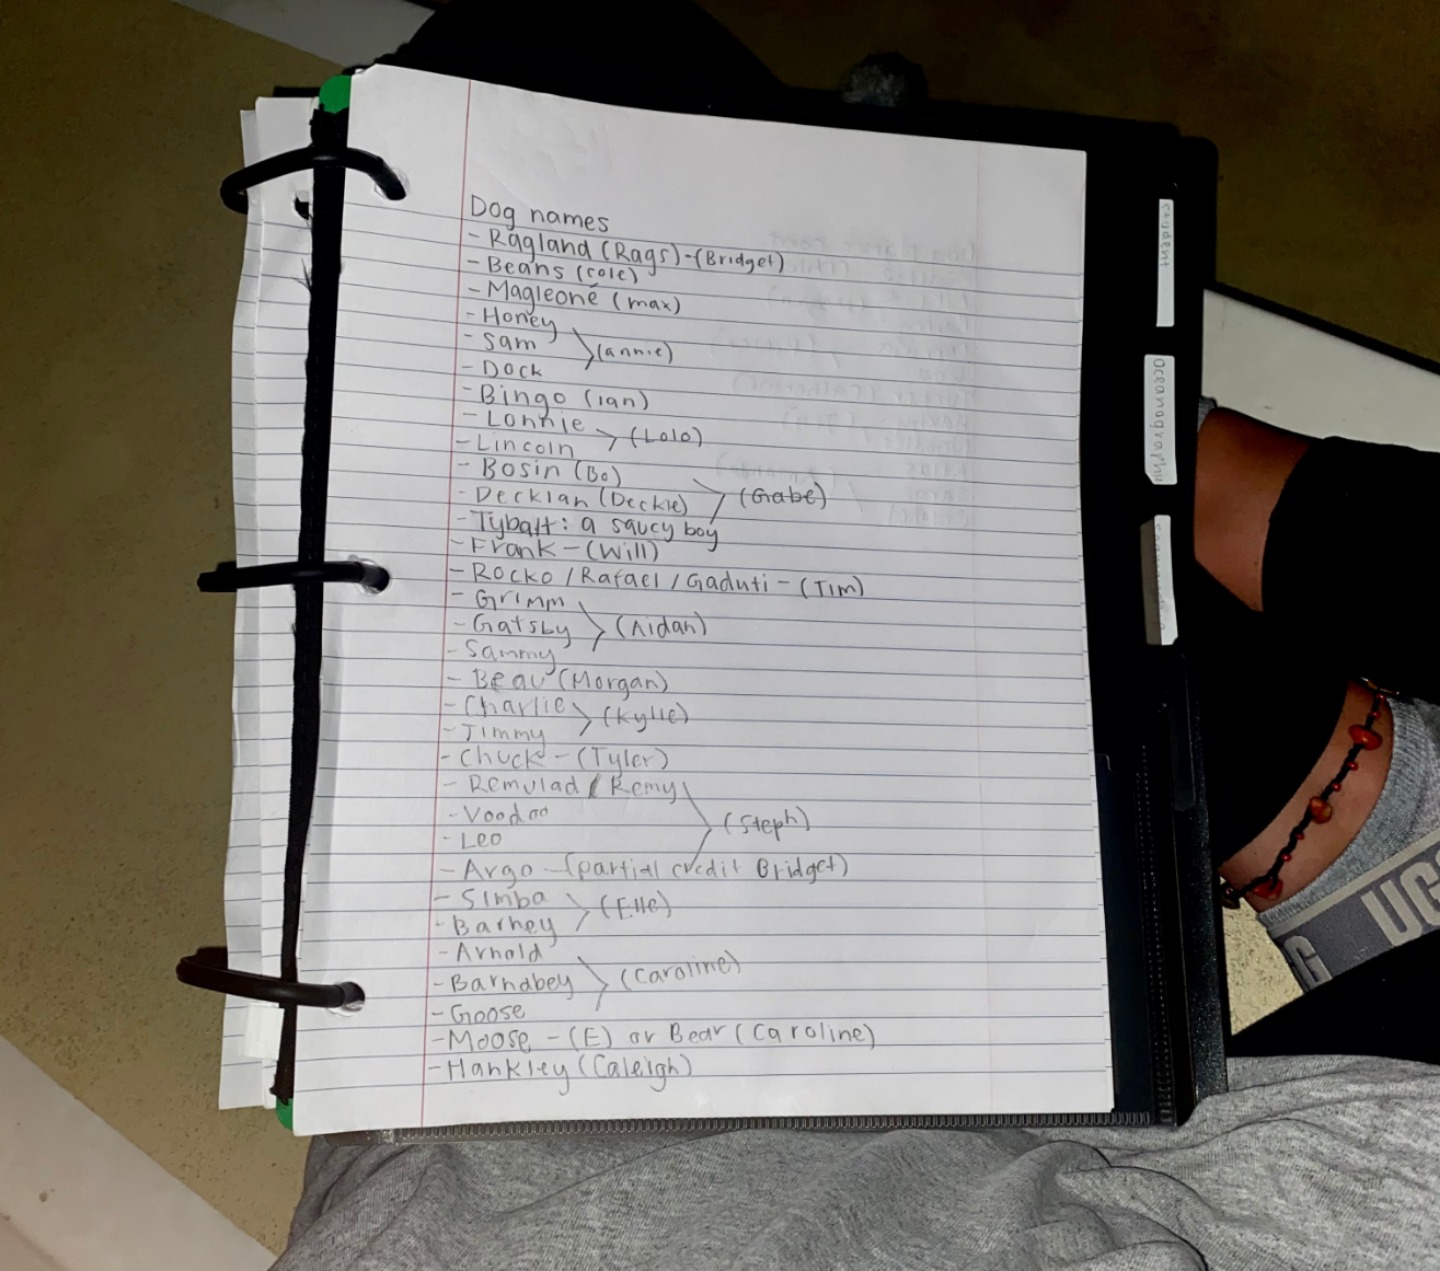 Dog names
- Ragland (Rags) - (Bridget)
- Beans (cole)
- Magleoné (max)
- Honey
- Sam
(annie)
- Dock
- Bingo (Ian)
- Lonnie
(Lolo)
- Lincoln
- Bosin (Bo)
- Decklan (Deckie)
(Gabe)
- Tybalt: a saucy boy
- Frank - (Will)
- Rocko / Rafael / Gaduti - (Tim)
- Grimm
- Gatsby
(Aidan)
- Sammy
- Beau (Morgan)
- Charlie
(Kylie)
- Jimmy
- Chuck - (Tyler)
- Remulad / Remy
- Voodoo
(Steph)
- Leo
- Argo - (partial credit Bridget)
- Simba
(Elle)
- Barney
- Arnold
- Barnabey
(Caroline)
- Goose
- Moose - (E) or Bear (Caroline)
- Hankley (Caleigh)
student
Oceanagraphy
UGG